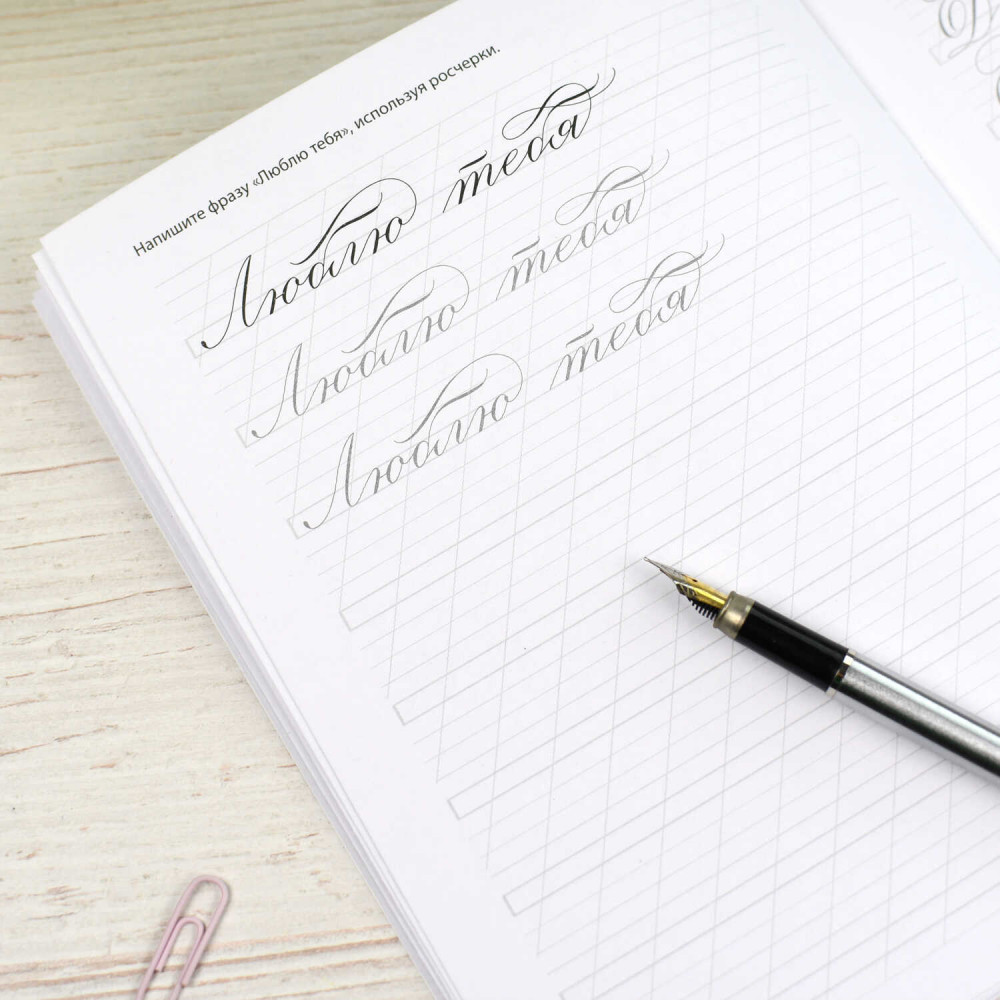 Напишите фразу «Люблю тебя», используя росчерки.
Люблю тебя
Люблю тебя
Люблю тебя